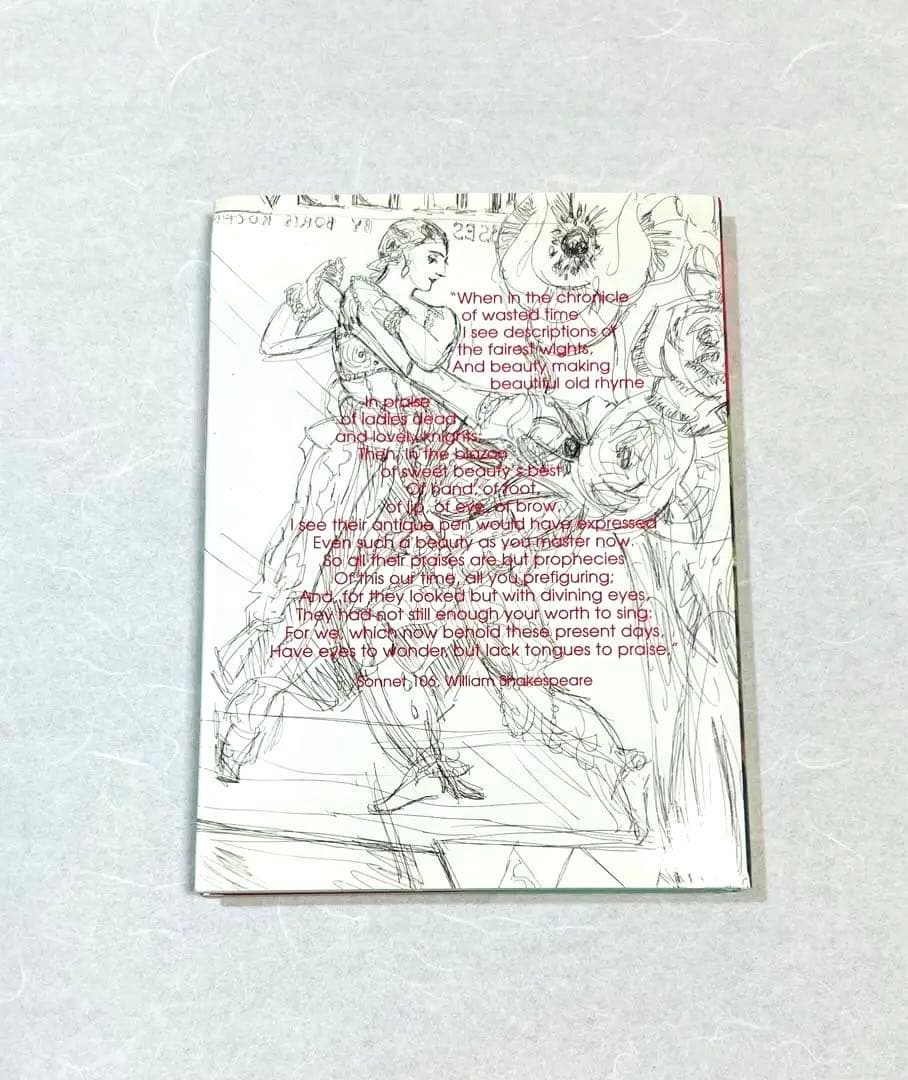 BY BORIS KOCH
SES
"When in the chronicle
of wasted time
I see descriptions of
the fairest wights,
And beauty making
beautiful old rhyme
In praise
of ladies dead
and lovely knights,
Then, in the blazon
of sweet beauty's best,
Of hand, of foot,
of lip, of eye, of brow,
I see their antique pen would have expressed
Even such a beauty as you master now.
So all their praises are but prophecies
Of this our time, all you prefiguring;
And, for they looked but with divining eyes,
They had not still enough your worth to sing:
For we, which now behold these present days,
Have eyes to wonder, but lack tongues to praise."
Sonnet 106, William Shakespeare